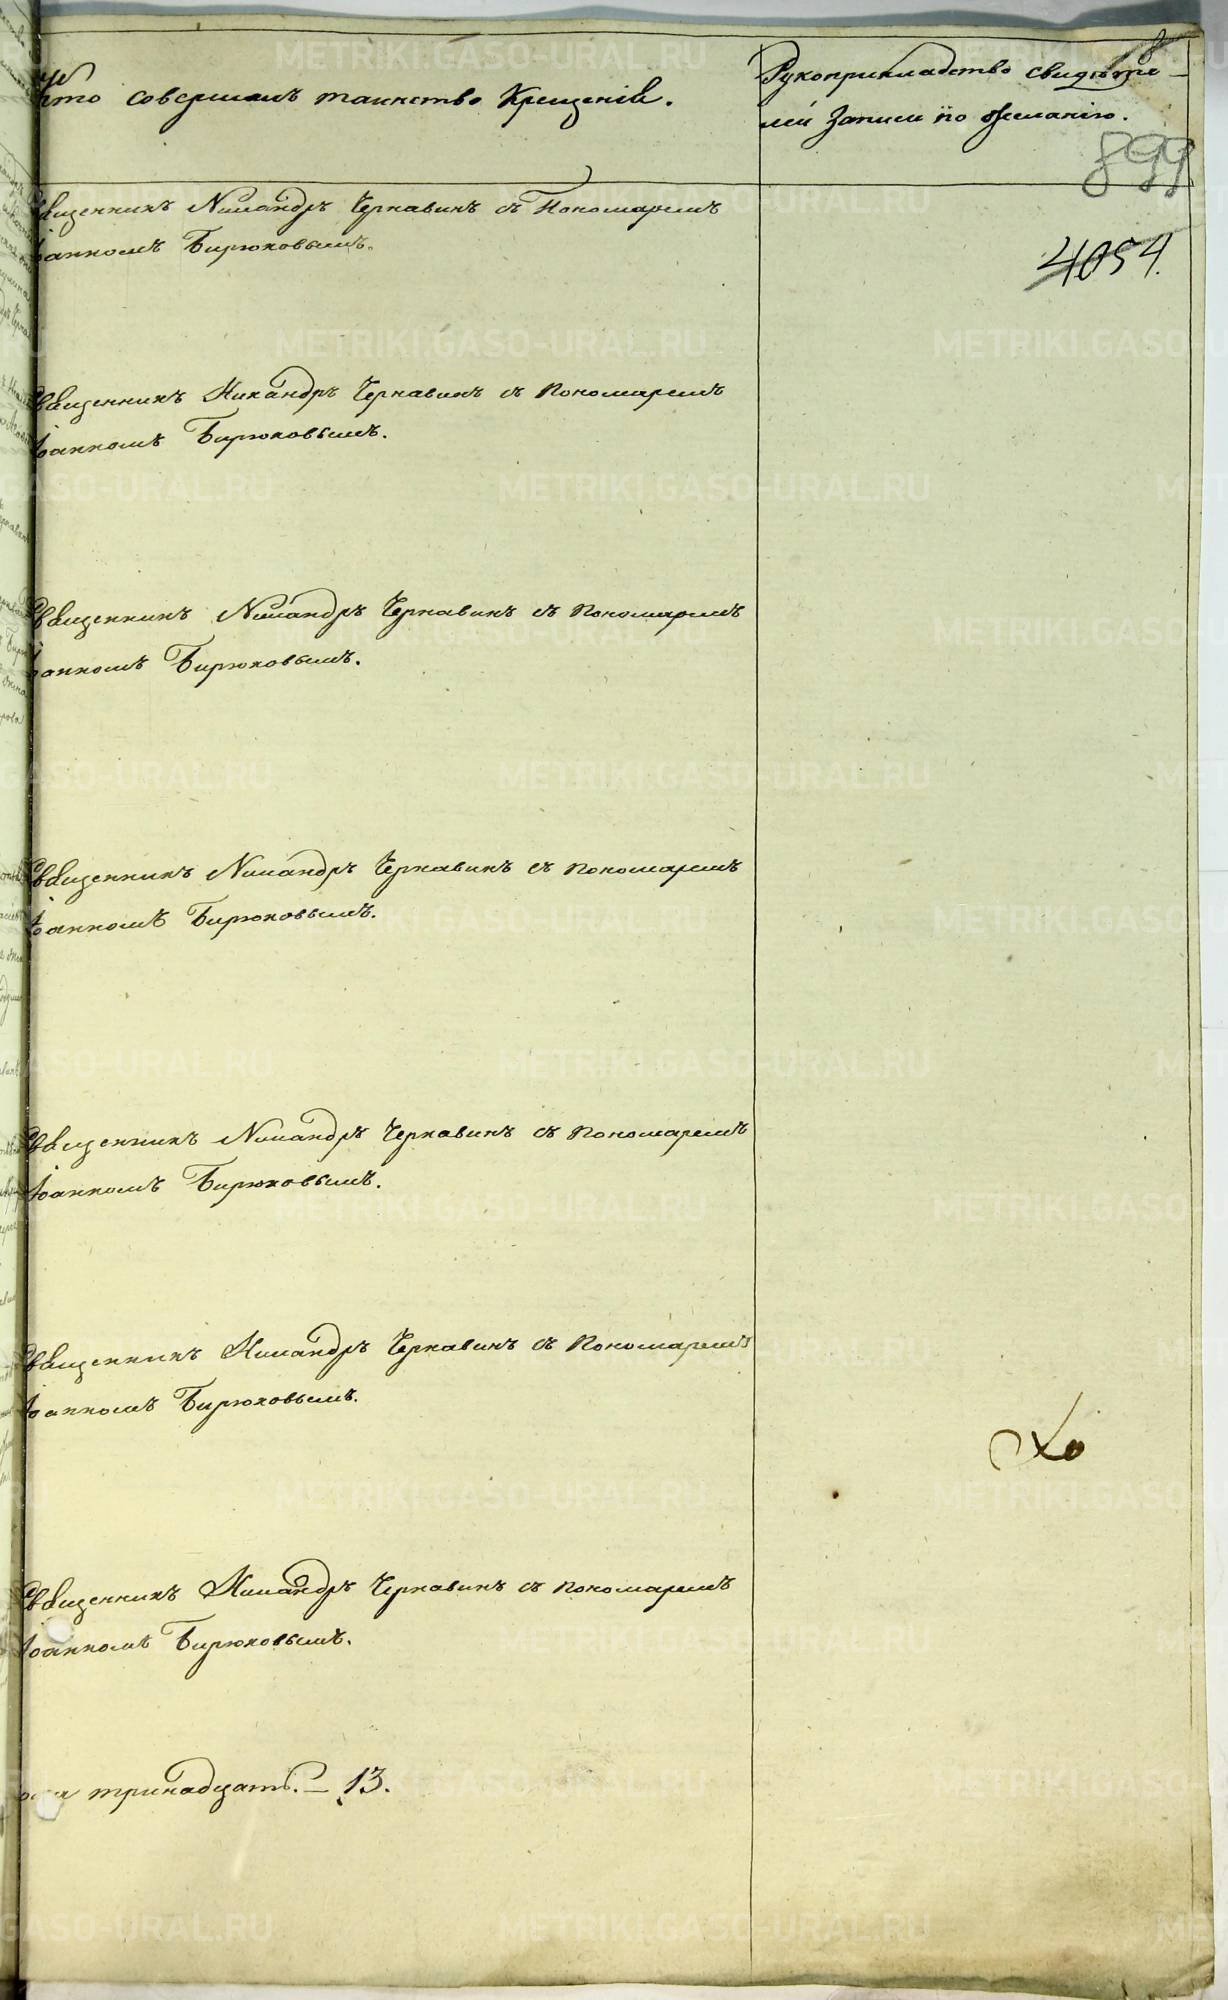 Кто совершалъ таинство Крещенія.
Рукоприкладство свидѣте-
лей записи по желанію.
8
899
4054.
Священникъ Никандръ Чернавинъ съ Пономаремъ
Іоанномъ Бирюковымъ.
Священникъ Никандръ Чернавинъ съ Пономаремъ
Іоанномъ Бирюковымъ.
Священникъ Никандръ Чернавинъ съ Пономаремъ
Іоанномъ Бирюковымъ.
Священникъ Никандръ Чернавинъ съ Пономаремъ
Іоанномъ Бирюковымъ.
Священникъ Никандръ Чернавинъ съ Пономаремъ
Іоанномъ Бирюковымъ.
Священникъ Никандръ Чернавинъ съ Пономаремъ
Іоанномъ Бирюковымъ.
Священникъ Никандръ Чернавинъ съ Пономаремъ
Іоанномъ Бирюковымъ.
тринадцать. – 13.
METRIKI.GASO-URAL.RU